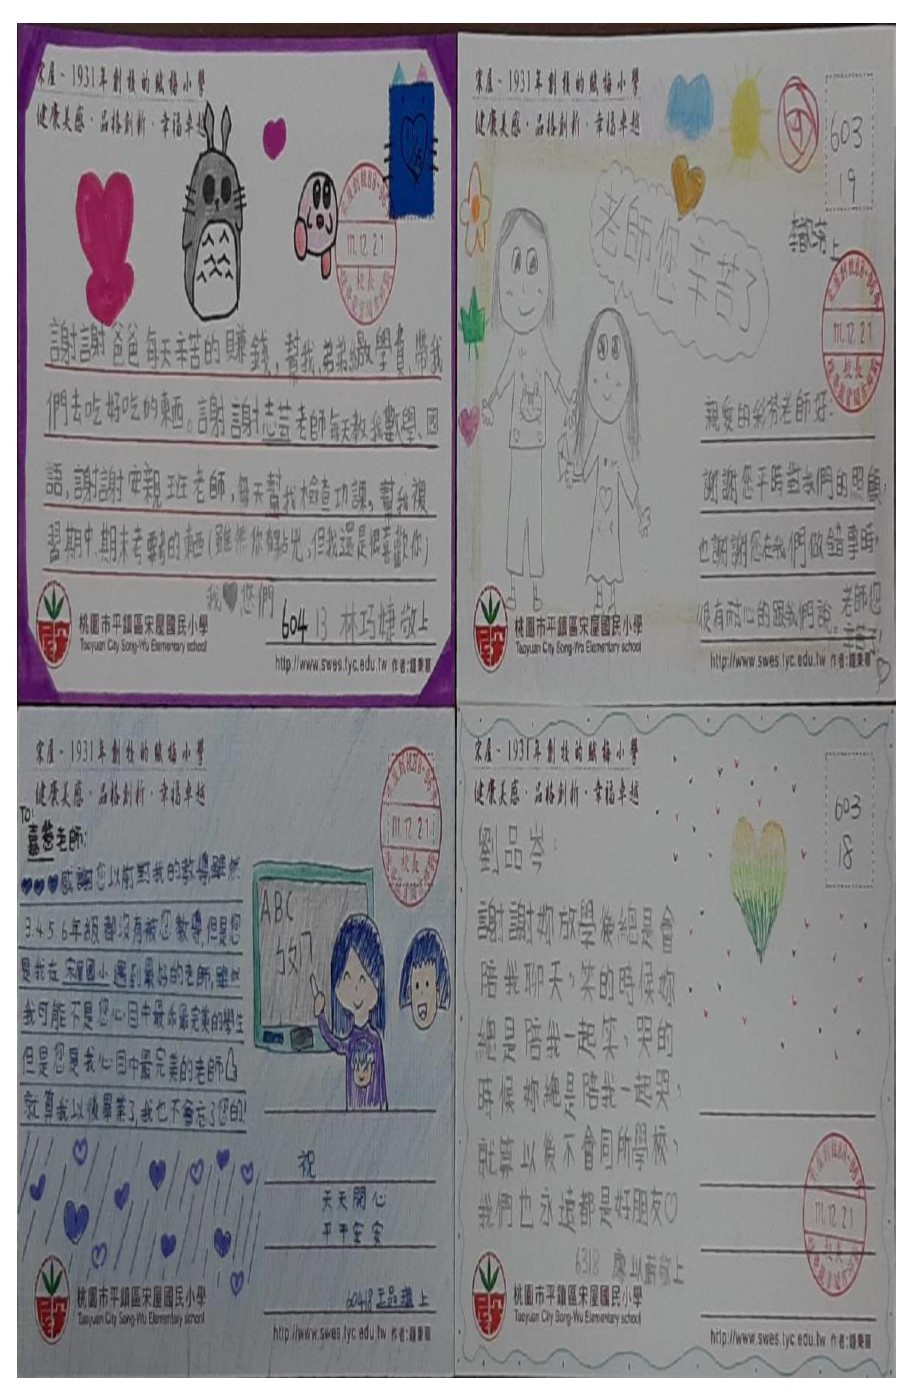 宋屋‧1931年創校的鹹梅小學
健康美感‧品格創新‧幸福卓越
111.12.21
校長
謝謝爸爸每天辛苦的賺錢,幫我、弟弟繳學費、帶我
們去吃好吃的東西。謝謝志芸老師每天教我數學、國
語,謝謝安親班老師,每天幫我檢查功課,幫我複
習期中、期末考要考的東西(雖然你有點兇,但我還是很喜歡你)
我♥您們
604 13 林巧 敬上
桃園市平鎮區宋屋國民小學
Taoyuan City Song-Wu Elementary school
http://www.swes.tyc.edu.tw 作者:鍾東華
宋屋‧1931年創校的鹹梅小學
健康美感‧品格創新‧幸福卓越
603
19
上
老師您辛苦了
111.12.21
校長
親愛的彩芬老師好~
謝謝您平時對我們的照顧,
也謝謝您在我們做錯事時,
很有耐心的跟我們說。老師您
辛苦了!
桃園市平鎮區宋屋國民小學
Taoyuan City Song-Wu Elementary school
http://www.swes.tyc.edu.tw 作者:鍾東華
宋屋‧1931年創校的鹹梅小學
健康美感‧品格創新‧幸福卓越
111.12.21
校長
TO:
老師:
♥♥♥感謝您以前對我的教導,雖然
3.4.5.6年級都沒有被您教導,但是您
是我在宋屋國小遇到最好的老師,雖然
我可能不是您心目中最完美的學生
但是您是我心目中最完美的老師
就算我以後畢業了,我也不會忘了您的!
ABC
ㄅㄆㄇ
祝
天天開心
平平安安
60418 王品 上
桃園市平鎮區宋屋國民小學
Taoyuan City Song-Wu Elementary school
http://www.swes.tyc.edu.tw 作者:鍾東華
宋屋‧1931年創校的鹹梅小學
健康美感‧品格創新‧幸福卓越
603
18
劉品岑:
謝謝妳放學後總是會
陪我聊天,笑的時候妳
總是陪我一起笑,哭的
時候妳總是陪我一起哭,
就算以後不會同所學校,
我們也永遠都是好朋友♡
6318 廖以 敬上
111.12.21
校長
桃園市平鎮區宋屋國民小學
Taoyuan City Song-Wu Elementary school
http://www.swes.tyc.edu.tw 作者:鍾東華